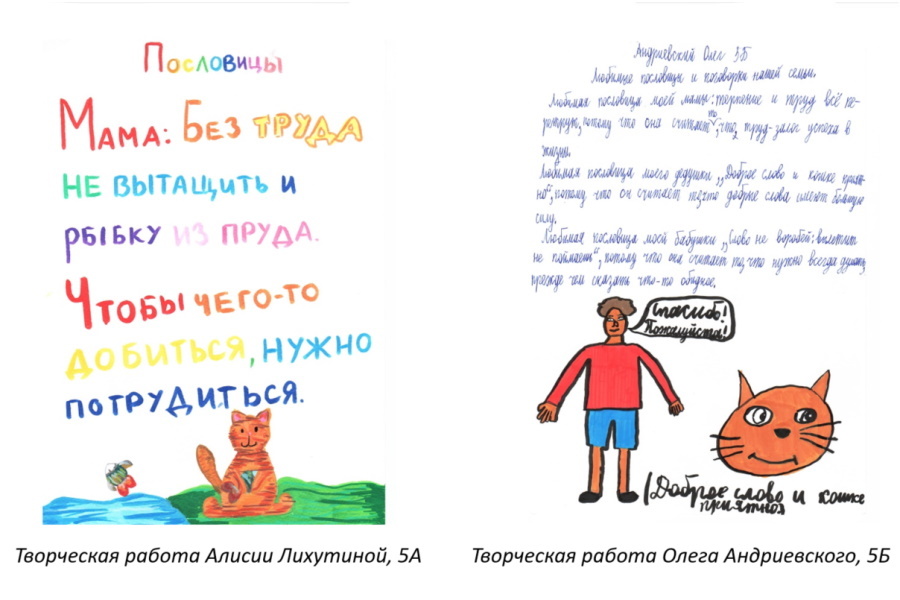 Пословицы
Мама: Без труда
не вытащить и
рыбку из пруда.
Чтобы чего-то
добиться, нужно
потрудиться.
Творческая работа Алисии Лихутиной, 5А
Андриевский Олег 5Б
Любимые пословицы и поговорки нашей семьи.
Любимая пословица моей мамы: терпение и труд всё пе-
ретрут, потому что она считает то, что труд-залог успеха в
жизни.
Любимая пословица моего дедушки „Доброе слово и кошке прият-
но", потому что он считает то, что добрые слова имеют большую
силу.
Любимая пословица моей бабушки „Слово не воробей: вылетит
не поймаешь", потому что она считает то, что нужно всегда думать,
прежде чем сказать что-то обидное.
Спасибо!
Пожалуйста!
Доброе слово и кошке
приятноя
Творческая работа Олега Андриевского, 5Б